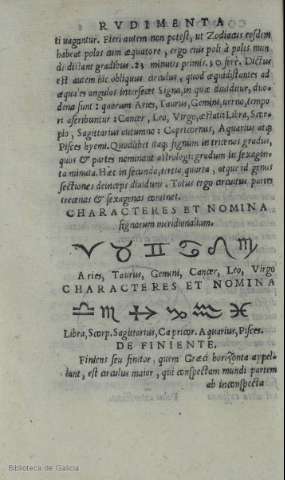 RVDIMENTA
ti vaguntur. Fieri autem non potest, ut Zodiacus eosdem
habeat polos cum æquatore, ergo eius poli à polis mun
di distant gradibus. 23 minutis primis. 30 ferè. Dictus
est autem hic obliquus circulus, quod æquidistantes ad
æquales angulos intersecet Signa, in quæ diuiditur, duo-
dena sunt: quorum Aries, Taurus, Gemini, uerno, tempo
ri ascribuntur: Cancer, Leo, Virgo, æstati: Libra, Scor-
pio, Sagittarius autumno: Capricornus, Aquarius atq́;
Pisces hyemi. Quodlibet itaq; signum in tricenos gradus,
quos & partes nominant astrologi: gradum in sexagin-
ta minuta. Hæc in secunda, tertia quarta, atque id genus
sectiones deinceps diuidunt. Totus ergo circuitus partes
trecentas & sexaginta continet.
CHARACTERES ET NOMINA
signorum meridionalium.
♈ ♉ ♊ ♋ ♌ ♍
Aries, Taurus, Gemini, Cancer, Leo, Virgo
CHARACTERES ET NOMINA
♎ ♏ ♐ ♑ ♒ ♓
Libra, Scorp. Sagittarius, Capricor. Aquarius, Pisces.
DE FINIENTE.
Finiens seu finitor, quem Græci horizonta appel-
lant, est circulus maior, qui conspectam mundi partem
ab inconspecta
Biblioteca de Galicia